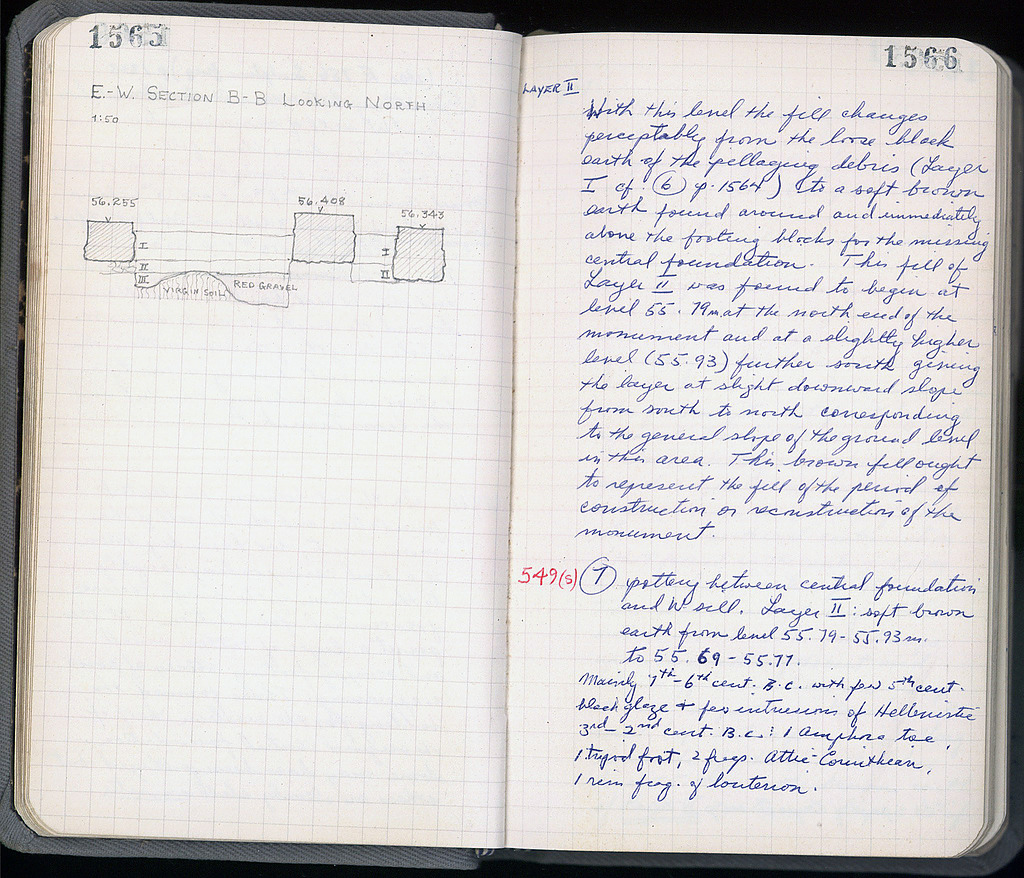 1565
E.-W. SECTION B-B LOOKING NORTH
1:50
56.255
56.408
56.343
I
II
III
I
II
VIRGIN SOIL
RED GRAVEL
1566
LAYER II
With this level the fill changes
perceptably from the loose black
earth of the pillaging debris (Layer
I cf. 6 p. 1564) to a soft brown
earth found around and immediately
above the footing blocks for the missing
central foundation. This fill of
Layer II was found to begin at
level 55.79m at the north end of the
monument and at a slightly higher
level (55.93) further south giving
the layer at slight downward slope
from south to north corresponding
to the general slope of the ground level
in this area. This brown fill ought
to represent the fill of the period of
construction or reconstruction of the
monument.
549(s) 7 pottery between central foundation
and W sill. Layer II: soft brown
earth from level 55.79-55.93m.
to 55.69-55.77.
Mainly 7th-6th cent. B.C. with few 5th cent.
black glaze & few intrusions of Hellenistic
3rd-2nd cent. B.C.: 1 amphora toe,
1 tripod foot, 2 frags. Attic-Corinthean,
1 rim frag. of louterion.